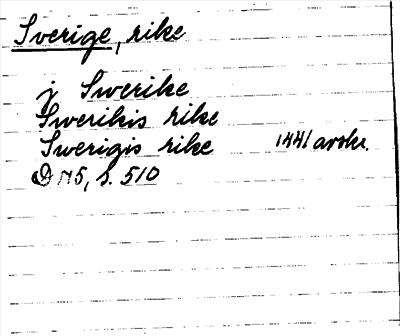 Sverige, rike
j Swerike
Swerikis rike
Swerigis rike 1441 avskr.
D N5, s. 510